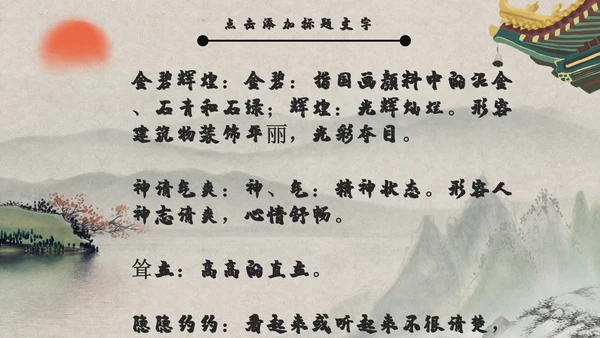 点击添加标题文字
金碧辉煌：金碧：指国画颜料中的泥金
、石青和石绿；辉煌：光辉灿烂。形容
建筑物装饰华丽，光彩夺目。
神清气爽：神、气：精神状态。形容人
神志清爽，心情舒畅。
耸立：高高的直立。
隐隐约约：看起来或听起来不很清楚，